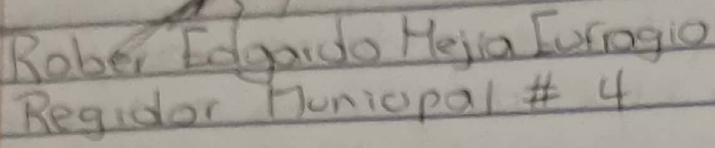 Rober Edgardo Mejia Eurogio
Regidor Municipal # 4